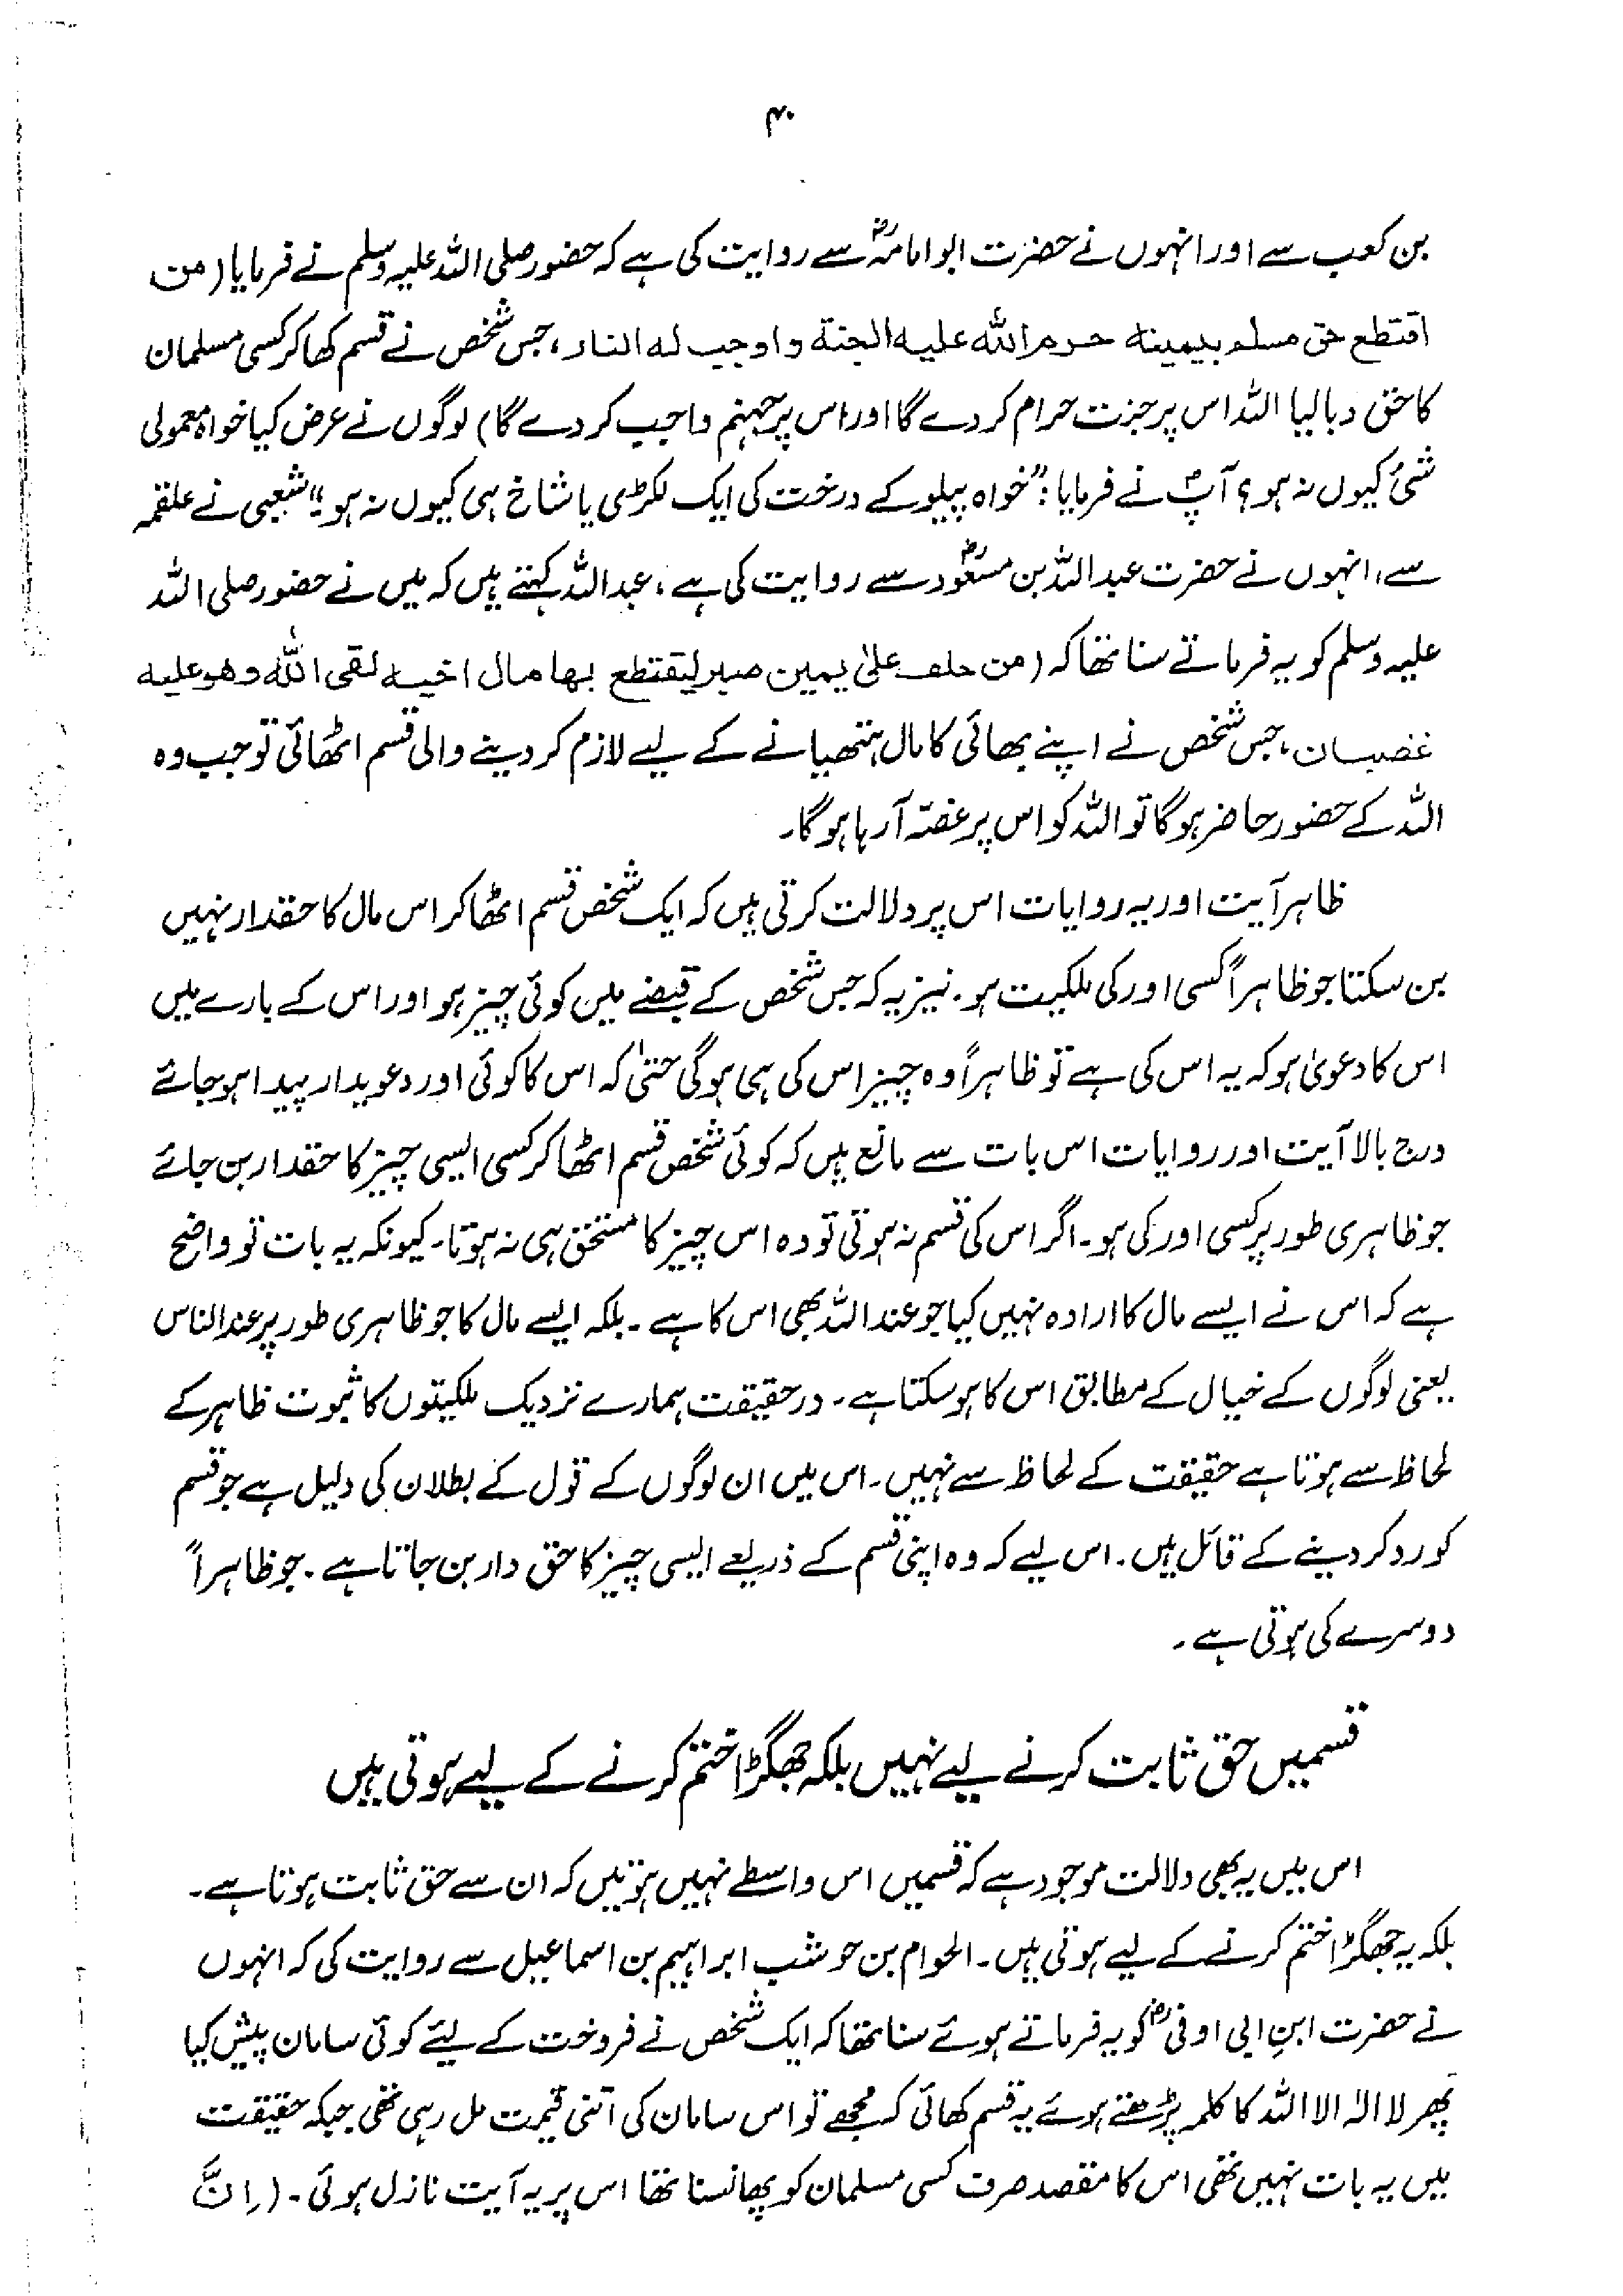 ۴۰
بن کعب سے اور انہوں نے حضرت ابو امامہؓ سے روایت کی ہے کہ حضور صلی اللہ علیہ وسلم نے فرمایا (من
اقتطع حق مسلم بیمینه حرم الله علیه الجنة و اوجب له النار، جس شخص نے قسم کھا کر کسی مسلمان
کا حق دبا لیا اللہ اس پر جنت حرام کر دے گا اور اس پر جہنم واجب کر دے گا) لوگوں نے عرض کیا خواہ معمولی
شئ کیوں نہ ہو؟ آپؐ نے فرمایا: "خواہ پیلو کے درخت کی ایک لکڑی یا شاخ ہی کیوں نہ ہو" شعبی نے علقمہ
سے، انہوں نے حضرت عبد اللہ بن مسعودؓ سے روایت کی ہے، عبد اللہ کہتے ہیں کہ میں نے حضور صلی اللہ
علیہ وسلم کو یہ فرماتے سنا تھا کہ (من حلف علیٰ یمین صبر لیقتطع بها مال اخیه لقی الله وهو علیه
غضبان، جس شخص نے اپنے بھائی کا مال ہتھیانے کے لیے لازم کر دینے والی قسم اٹھائی تو جب وہ
اللہ کے حضور حاضر ہو گا تو اللہ کو اس پر غصّہ آ رہا ہو گا۔
ظاہر آیت اور یہ روایات اس پر دلالت کرتی ہیں کہ ایک شخص قسم اٹھا کر اس مال کا حقدار نہیں
بن سکتا جو ظاہراً کسی اور کی ملکیت ہو۔ نیز یہ کہ جس شخص کے قبضے میں کوئی چیز ہو اور اس کے بارے میں
اس کا دعویٰ ہو کہ یہ اس کی ہے تو ظاہراً وہ چیز اس کی ہی ہو گی حتیٰ کہ اس کا کوئی اور دعویدار پیدا ہو جائے
درج بالا آیت اور روایات اس بات سے مانع ہیں کہ کوئی شخص قسم اٹھا کر کسی ایسی چیز کا حقدار بن جائے
جو ظاہری طور پر کسی اور کی ہو۔ اگر اس کی قسم نہ ہوتی تو وہ اس چیز کا مستحق ہی نہ ہوتا۔ کیونکہ یہ بات تو واضح
ہے کہ اس نے ایسے مال کا ارادہ نہیں کیا جو عند اللہ بھی اس کا ہے۔ بلکہ ایسے مال کا جو ظاہری طور پر عند الناس
یعنی لوگوں کے خیال کے مطابق اس کا ہو سکتا ہے۔ در حقیقت ہمارے نزدیک ملکیتوں کا ثبوت ظاہر کے
لحاظ سے ہوتا ہے حقیقت کے لحاظ سے نہیں۔ اس میں ان لوگوں کے قول کے بطلان کی دلیل ہے جو قسم
کو رد کر دینے کے قائل ہیں۔ اس لیے کہ وہ اپنی قسم کے ذریعے ایسی چیز کا حق دار بن جاتا ہے۔ جو ظاہراً
دوسرے کی ہوتی ہے۔
قسمیں حق ثابت کرنے لیے نہیں بلکہ جھگڑا ختم کرنے کے لیے ہوتی ہیں
اس میں یہ بھی دلالت موجود ہے کہ قسمیں اس واسطے نہیں ہوتیں کہ ان سے حق ثابت ہوتا ہے۔
بلکہ یہ جھگڑا ختم کرنے کے لیے ہوتی ہیں۔ الحوام بن حوشب ابراہیم بن اسماعیل سے روایت کی کہ انہوں
نے حضرت ابنِ ابی اوفیؓ کو یہ فرماتے ہوئے سنا تھا کہ ایک شخص نے فروخت کے لیئے کوئی سامان پیش کیا
پھر لا الہ الا اللہ کا کلمہ پڑھتے ہوئے یہ قسم کھائی کہ مجھے تو اس سامان کی اتنی قیمت مل رہی تھی جبکہ حقیقت
میں یہ بات نہیں تھی اس کا مقصد صرف کسی مسلمان کو پھانسنا تھا اس پر یہ آیت نازل ہوئی۔ (اِنَّ